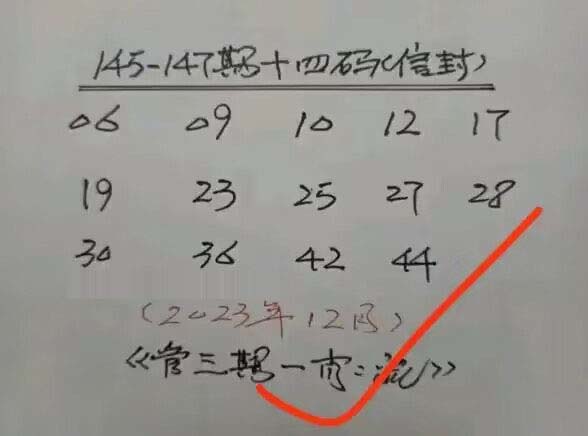 145-147期十四码(信封)
06 09 10 12 17
19 23 25 27 28
30 36 42 44
(2023年12月)
《管三期一肖: